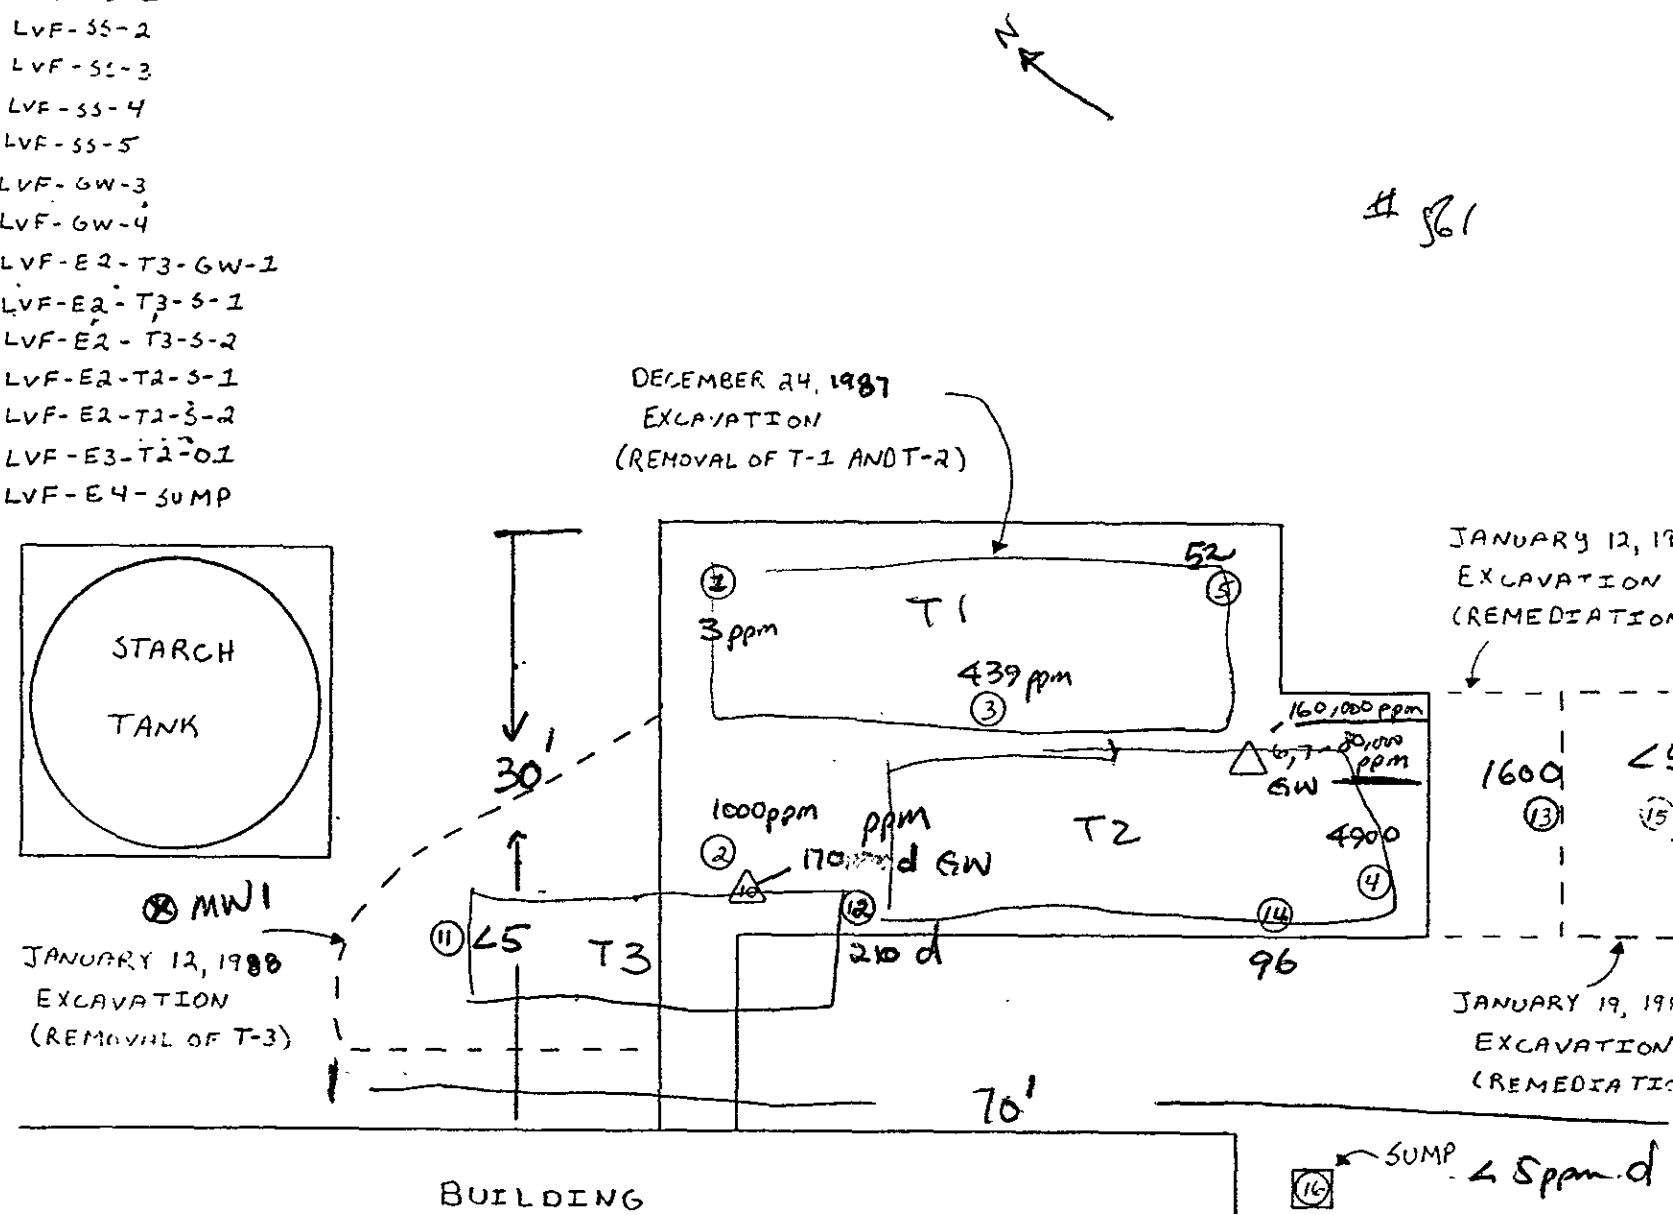 LVF-SS-2
LVF-SS-3
LVF-SS-4
LVF-SS-5
LVF-GW-3
LVF-GW-4
LVF-E2-T3-GW-1
LVF-E2-T3-S-1
LVF-E2-T3-S-2
LVF-E2-T2-S-1
LVF-E2-T2-S-2
LVF-E3-T2-01
LVF-E4-SUMP
N
# 561
DECEMBER 24, 1987
EXCAVATION
(REMOVAL OF T-1 AND T-2)
JANUARY 12, 19
EXCAVATION
(REMEDIATION
STARCH
TANK
30'
1
3 ppm
T1
52
5
439 ppm
3
160,000 ppm
6, 7 - 80,000
ppm
GW
1600
13
<5
15
1000ppm
2
ppm
170 d GW
10
T2
4900
4
12
210 d
14
96
MW1
11
<5
T3
JANUARY 12, 1988
EXCAVATION
(REMOVAL OF T-3)
JANUARY 19, 19
EXCAVATION
(REMEDIATIO
70'
BUILDING
16
SUMP
< 5ppm d